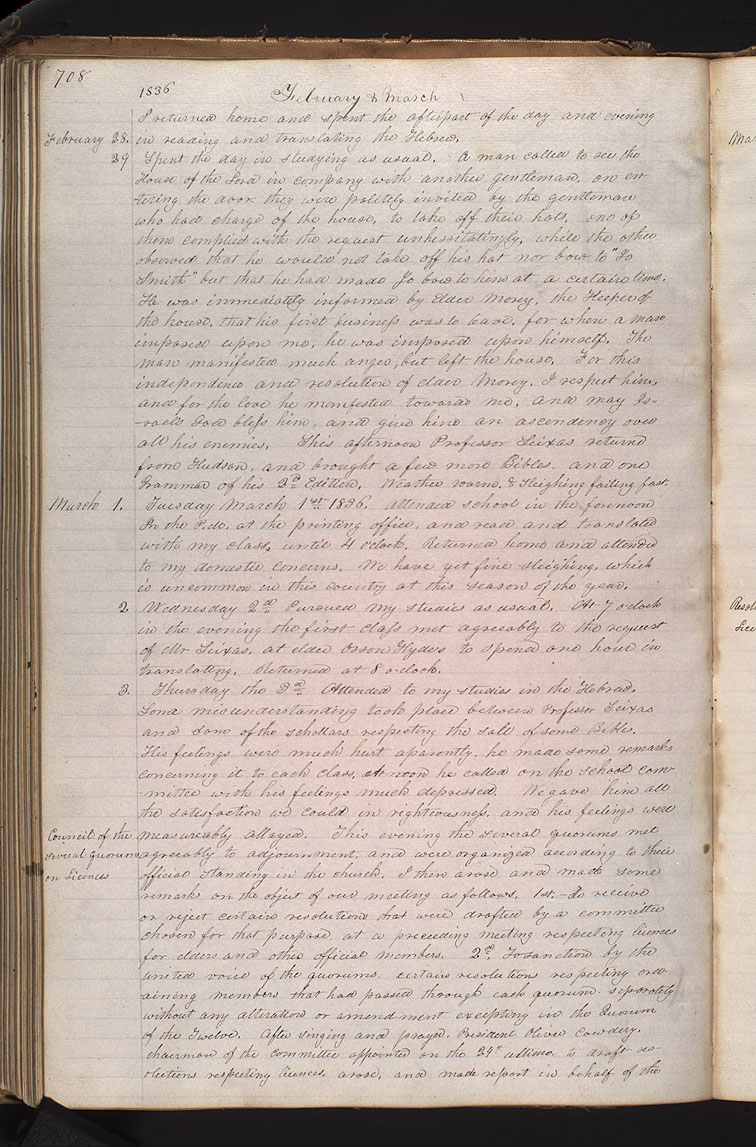 708
1836
February & March
I returned home and spent the afterpart of the day and evening
February 28. in reading and translating the Hebrew.
29 Spent the day in studying as usual. A man called to see the
House of the Lord in company with another gentleman, on en-
tering the door they were politely invited by the gentleman
who had charge of the house, to take off their hats, one of
them complied with the request unhessitatingly, while the other
observed that he would not take off his hat nor bow to "Jo
Smith" but that he had made Jo bow to him at a certain time.
He was immediately informed by Elder Morey, the Keeper of
the house, that his first business was to leave, for when a man
imposed upon me, he was imposed upon himself. The
man manifested much anger, but left the house. For this
independence and resolution of elder Morey, I respect him,
and for the love he manifested towards me, and may Is-
-raels God bless him, and give him an ascendency over
all his enemies. This afternoon Professor Seixas returned
from Hudson, and brought a few more Bibles, and one
Grammar of his 2d Edition, Weather warm, & Sleighing failing fast.
March 1. Tuesday March 1st 1836. Attended school in the forenoon
In the P.M. at the printing office, and read and translated
with my class, until 4 oclock. Returned home and attended
to my domestic concerns. We have yet fine sleighing, which
is uncommon in this country at this season of the year.
2. Wednesday 2nd Pursued my studies as usual. At 7 oclock
in the evening the first class met agreeably to the request
of Mr Seixas, at elder Orson Hydes to spend one hour in
translating. Returned at 8 o clock.
3. Thursday the 3rd Attended to my studies in the Hebrew.
Some misunderstanding took place between Professor Seixas
and some of the schollars respecting the sale of some Bibles.
His feelings were much hurt aparently, he made some remarks
concerning it to each class, At noon he called on the school com-
mittee with his feelings much depressed. We gave him all
the satisfaction we could in righteousness, and his feelings were
Council of the measureably allayed. This evening the several quorums met
several quorums agreeably to adjournment, and were organized according to their
on Licences official standing in the church. I then arose and made some
remarks on the object of our meeting as follows. 1st.- To receive
or reject certain resolutions that were drafted by a committee
chosen for that purpose at a preceeding meeting respecting licences
for elders and other official members. 2d. To sanction by the
united voice of the quorums certain resolutions respecting ord-
aining members that had passed through each quorum seperately
without any alteration or amendment excepting in the Quorum
of the Twelve. After singing and prayer, President Oliver Cowdery,
chairman of the committee appointed on the 24th ultimo, to draft res-
olutions respecting licences, arose, and made report in behalf of the